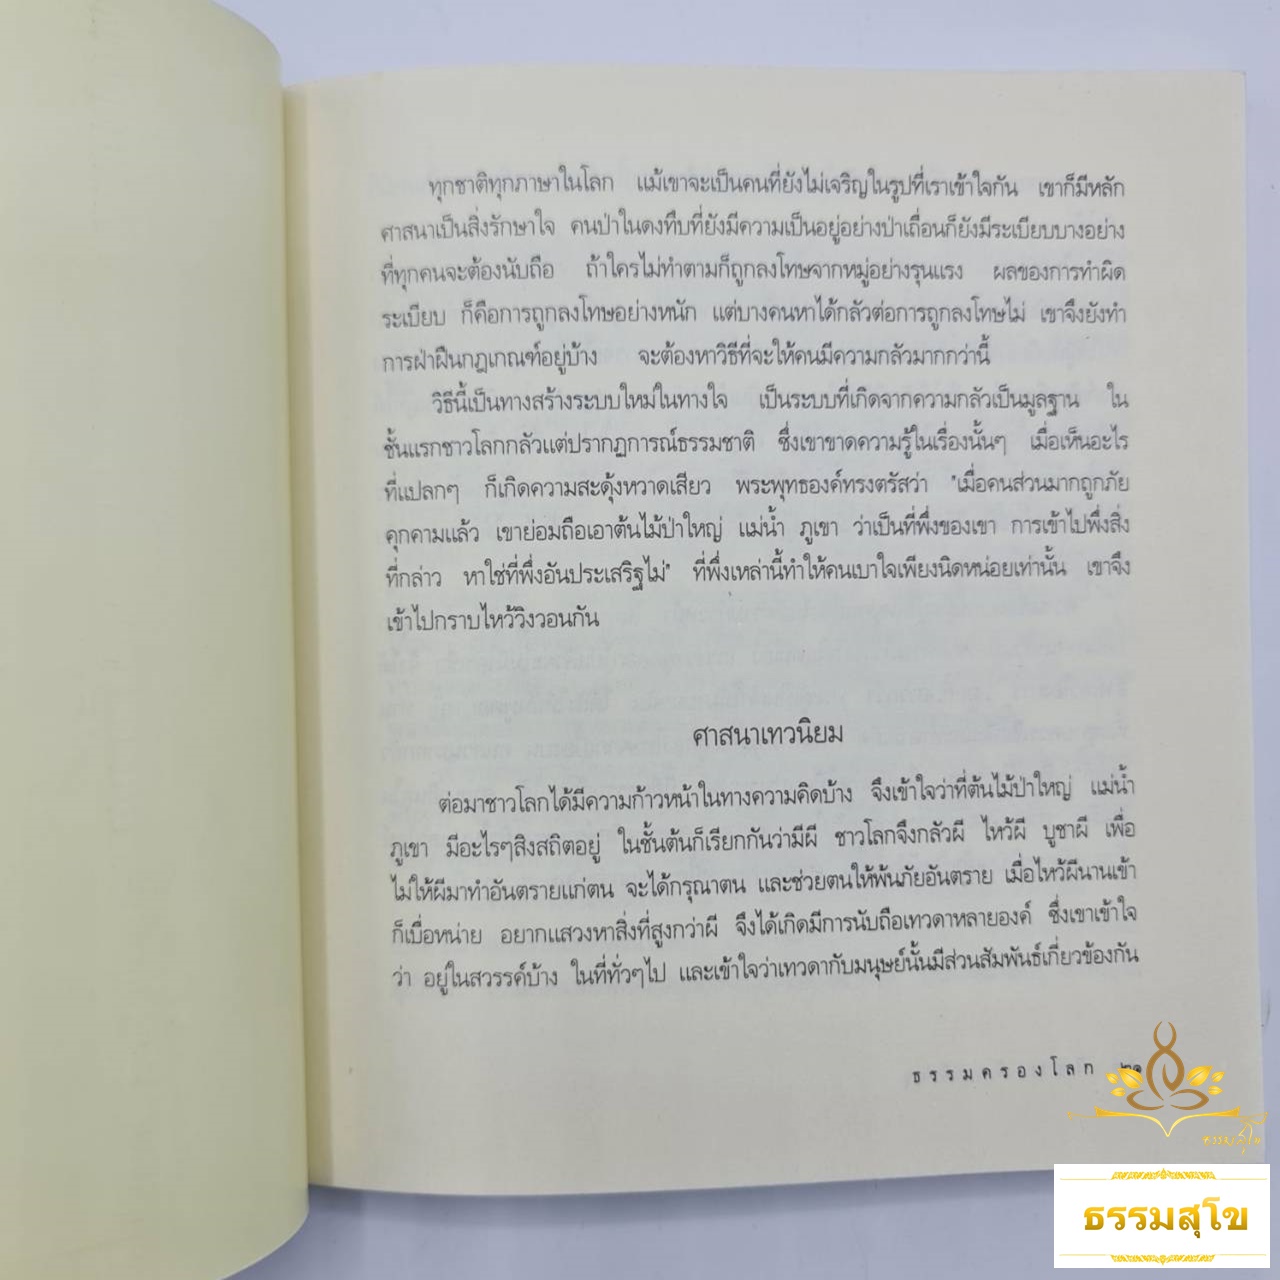 ทุกชาติทุกภาษาในโลก แม้เขาจะเป็นคนที่ยังไม่เจริญในรูปที่เราเข้าใจกัน เขาก็มีหลัก
ศาสนาเป็นสิ่งรักษาใจ คนป่าในดงทึบที่ยังมีความเป็นอยู่อย่างป่าเถื่อนก็ยังมีระเบียบบางอย่าง
ที่ทุกคนจะต้องนับถือ ถ้าใครไม่ทำตามก็ถูกลงโทษจากหมู่อย่างรุนแรง ผลของการทำผิด
ระเบียบ ก็คือการถูกลงโทษอย่างหนัก แต่บางคนหาได้กลัวต่อการถูกลงโทษไม่ เขาจึงยังทำ
การฝ่าฝืนกฎเกณฑ์อยู่บ้าง จะต้องหาวิธีที่จะให้คนมีความกลัวมากกว่านี้
วิธีนี้เป็นทางสร้างระบบใหม่ในทางใจ เป็นระบบที่เกิดจากความกลัวเป็นมูลฐาน ใน
ชั้นแรกชาวโลกกลัวแต่ปรากฏการณ์ธรรมชาติ ซึ่งเขาขาดความรู้ในเรื่องนั้นๆ เมื่อเห็นอะไร
ที่แปลกๆ ก็เกิดความสะดุ้งหวาดเสียว พระพุทธองค์ทรงตรัสว่า "เมื่อคนส่วนมากถูกภัย
คุกคามแล้ว เขาย่อมถือเอาต้นไม้ป่าใหญ่ แม่น้ำ ภูเขา ว่าเป็นที่พึ่งของเขา การเข้าไปพึ่งสิ่ง
ที่กล่าว หาใช่ที่พึ่งอันประเสริฐไม่" ที่พึ่งเหล่านี้ทำให้คนเบาใจเพียงนิดหน่อยเท่านั้น เขาจึง
เข้าไปกราบไหว้วิงวอนกัน
ศาสนาเทวนิยม
ต่อมาชาวโลกได้มีความก้าวหน้าในทางความคิดบ้าง จึงเข้าใจว่าที่ต้นไม้ป่าใหญ่ แม่น้ำ
ภูเขา มีอะไรๆสิงสถิตอยู่ ในชั้นต้นก็เรียกกันว่ามีผี ชาวโลกจึงกลัวผี ไหว้ผี บูชาผี เพื่อ
ไม่ให้ผีมาทำอันตรายแก่ตน จะได้กรุณาตน และช่วยตนให้พ้นภัยอันตราย เมื่อไหว้ผีนานเข้า
ก็เบื่อหน่าย อยากแสวงหาสิ่งที่สูงกว่าผี จึงได้เกิดมีการนับถือเทวดาหลายองค์ ซึ่งเขาเข้าใจ
ว่า อยู่ในสวรรค์บ้าง ในที่ทั่วๆไป และเข้าใจว่าเทวดากับมนุษย์นั้นมีส่วนสัมพันธ์เกี่ยวข้องกัน
ธรรมครองโลก ๒๑
ธรรมสุโข
ธรรมสุโข